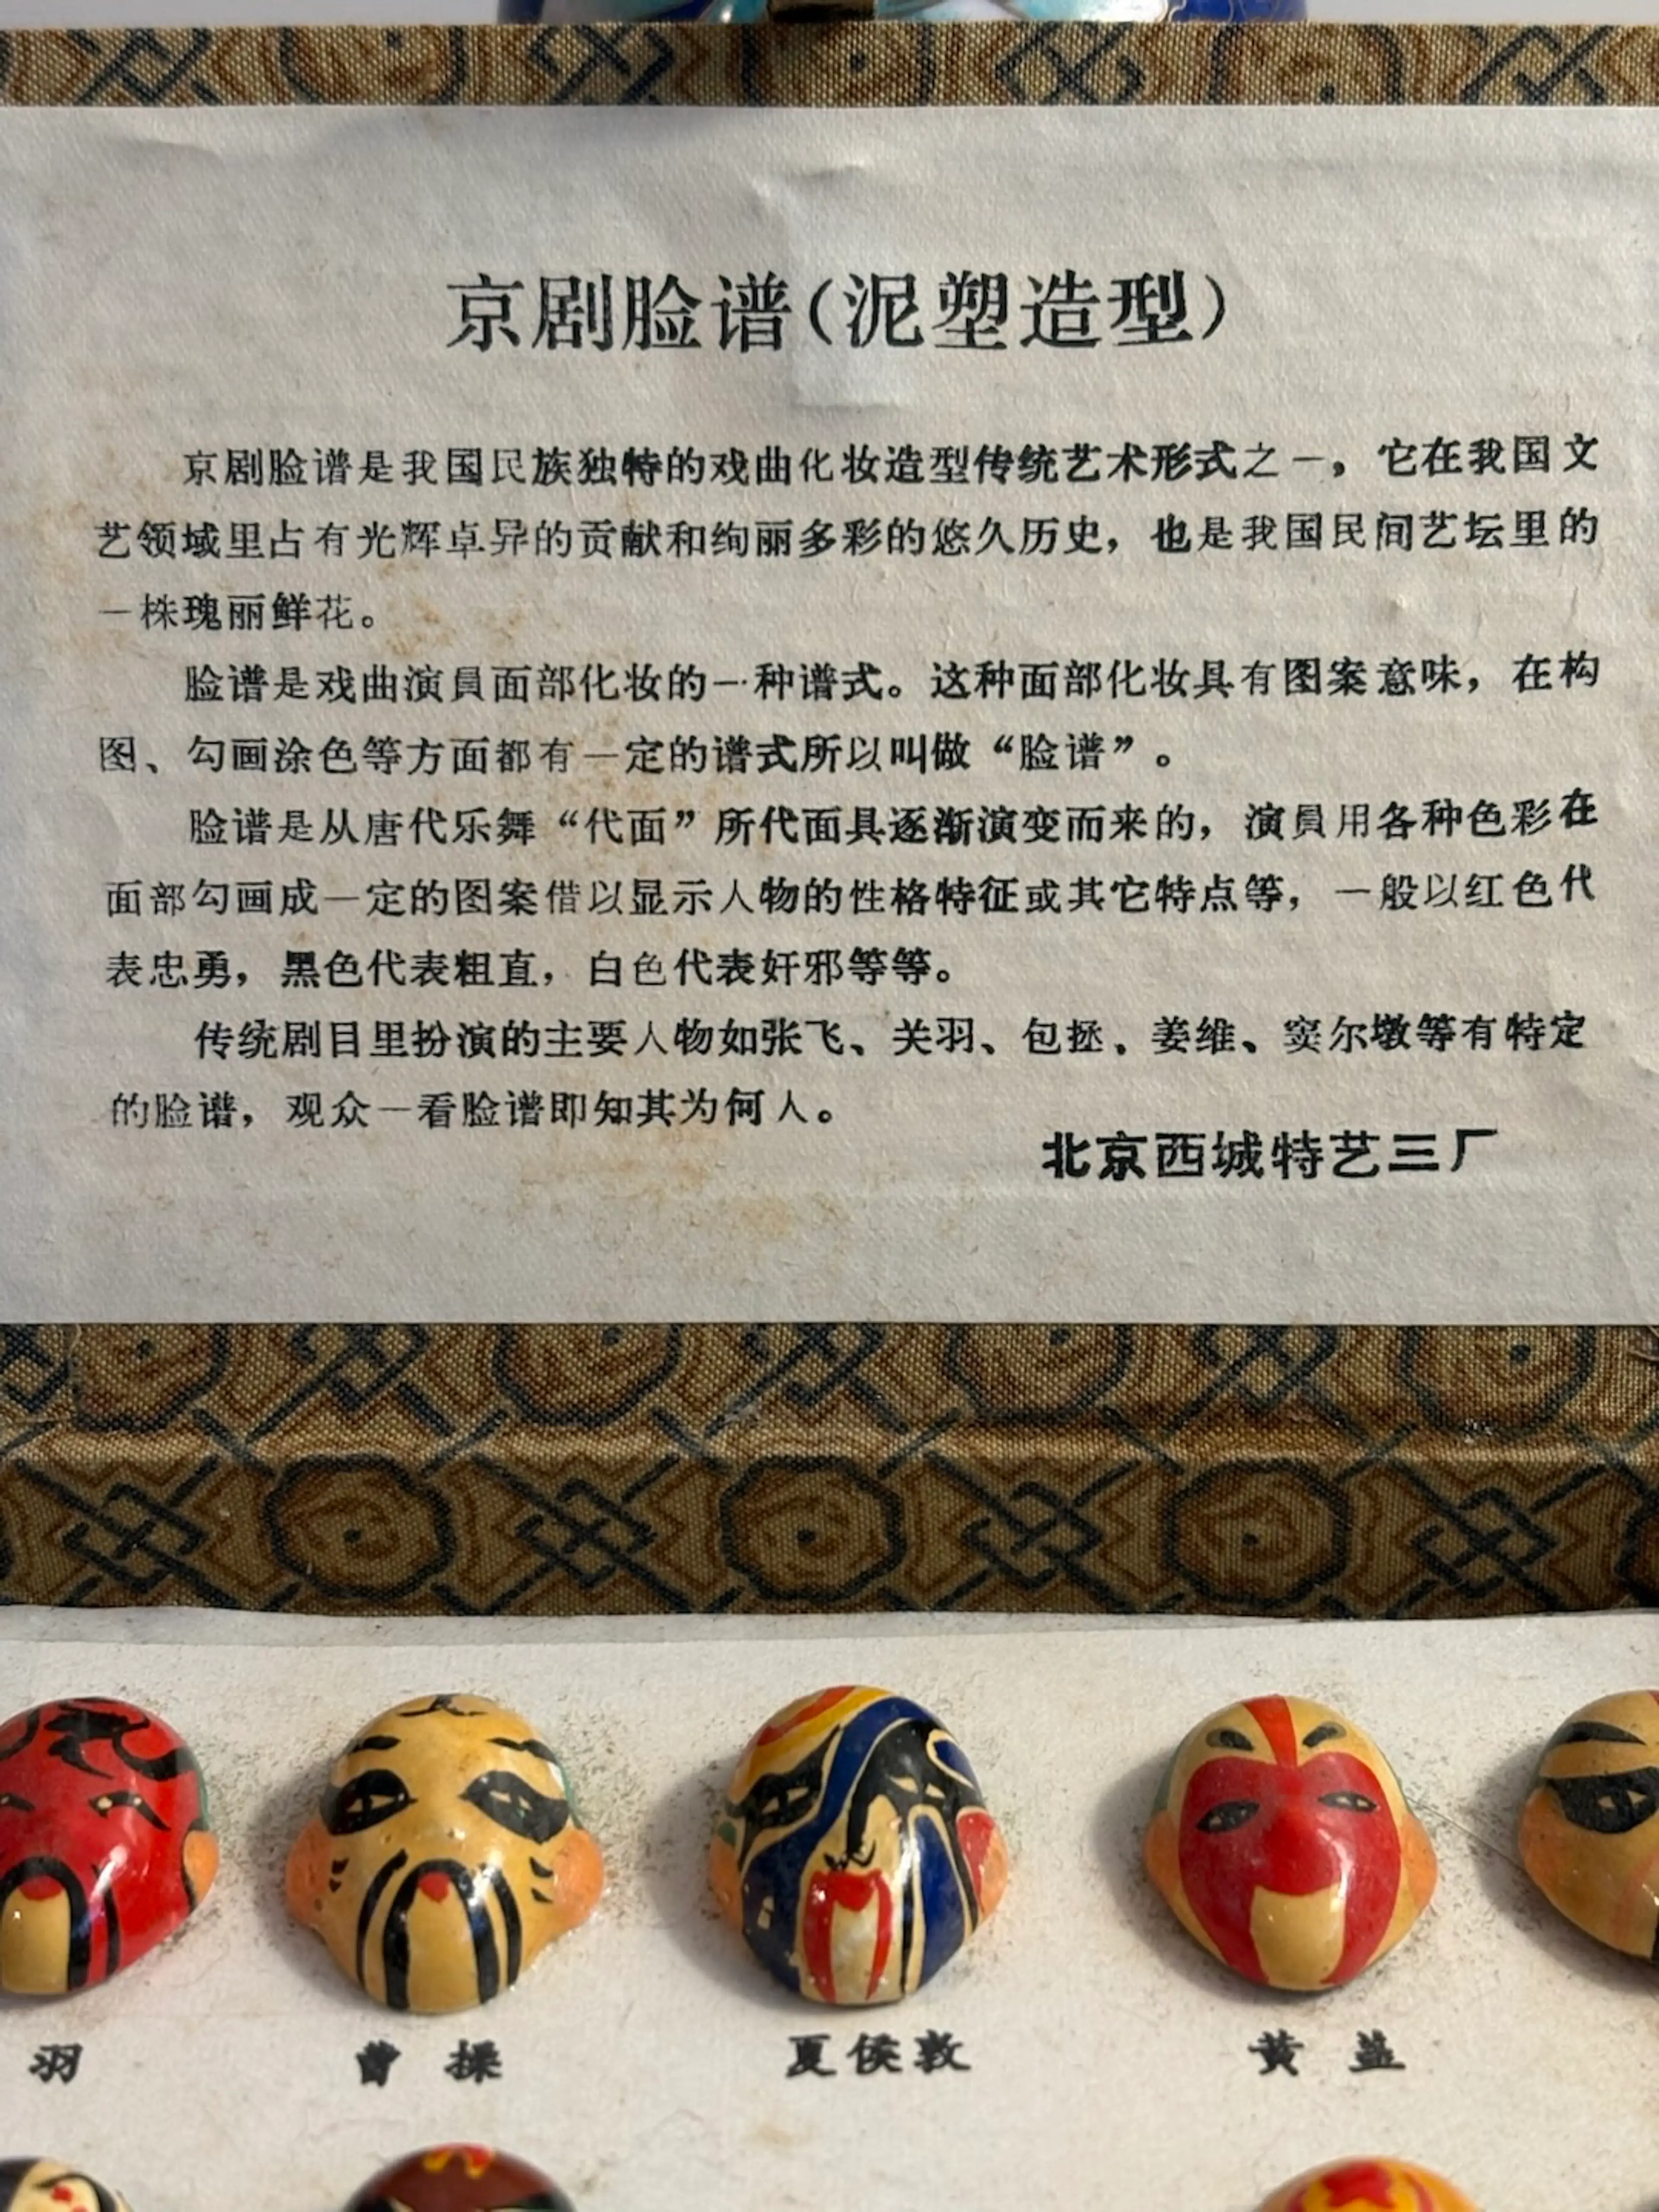 京剧脸谱(泥塑造型)
京剧脸谱是我国民族独特的戏曲化妆造型传统艺术形式之一，它在我国文
艺领域里占有光辉卓异的贡献和绚丽多彩的悠久历史，也是我国民间艺坛里的
一株瑰丽鲜花。
脸谱是戏曲演員面部化妆的一种谱式。这种面部化妆具有图案意味，在构
图、勾画涂色等方面都有一定的谱式所以叫做“脸谱”。
脸谱是从唐代乐舞“代面”所代面具逐渐演变而来的，演員用各种色彩在
面部勾画成一定的图案借以显示人物的性格特征或其它特点等，一般以红色代
表忠勇，黑色代表粗直，白色代表奸邪等等。
传统剧目里扮演的主要人物如张飞、关羽、包拯、姜维、窦尔墩等有特定
的脸谱，观众一看脸谱即知其为何人。
北京西城特艺三厂
羽 曹操 夏侯敦 黄盖